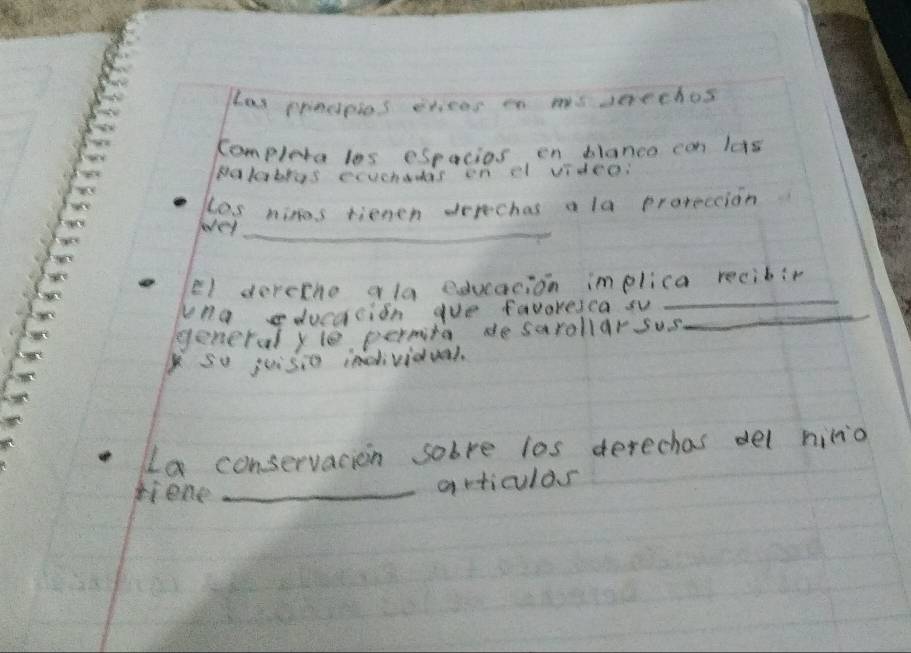 Los principios éticos en mis derechos
Completa los espacios en blanco con las
palabras ecuchadas en el video:
• Los niños tienen derechos a la protección
del
• El derecho a la educación implica recibir
una educación que favoresca su
general y le permita desarollar sus
y su juisio individual.
• La conservación sobre los derechos del niño
tiene articulos